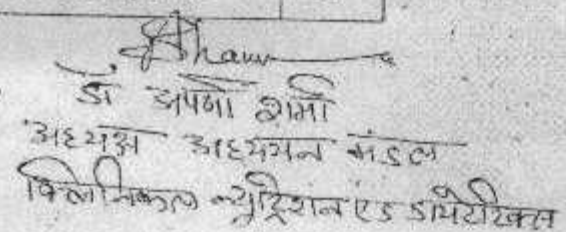 डॉ अपर्णा शर्मा
अध्यक्ष अध्ययन मंडल
क्लिनिकल न्यूट्रिशन एंड डायटेटिक्स